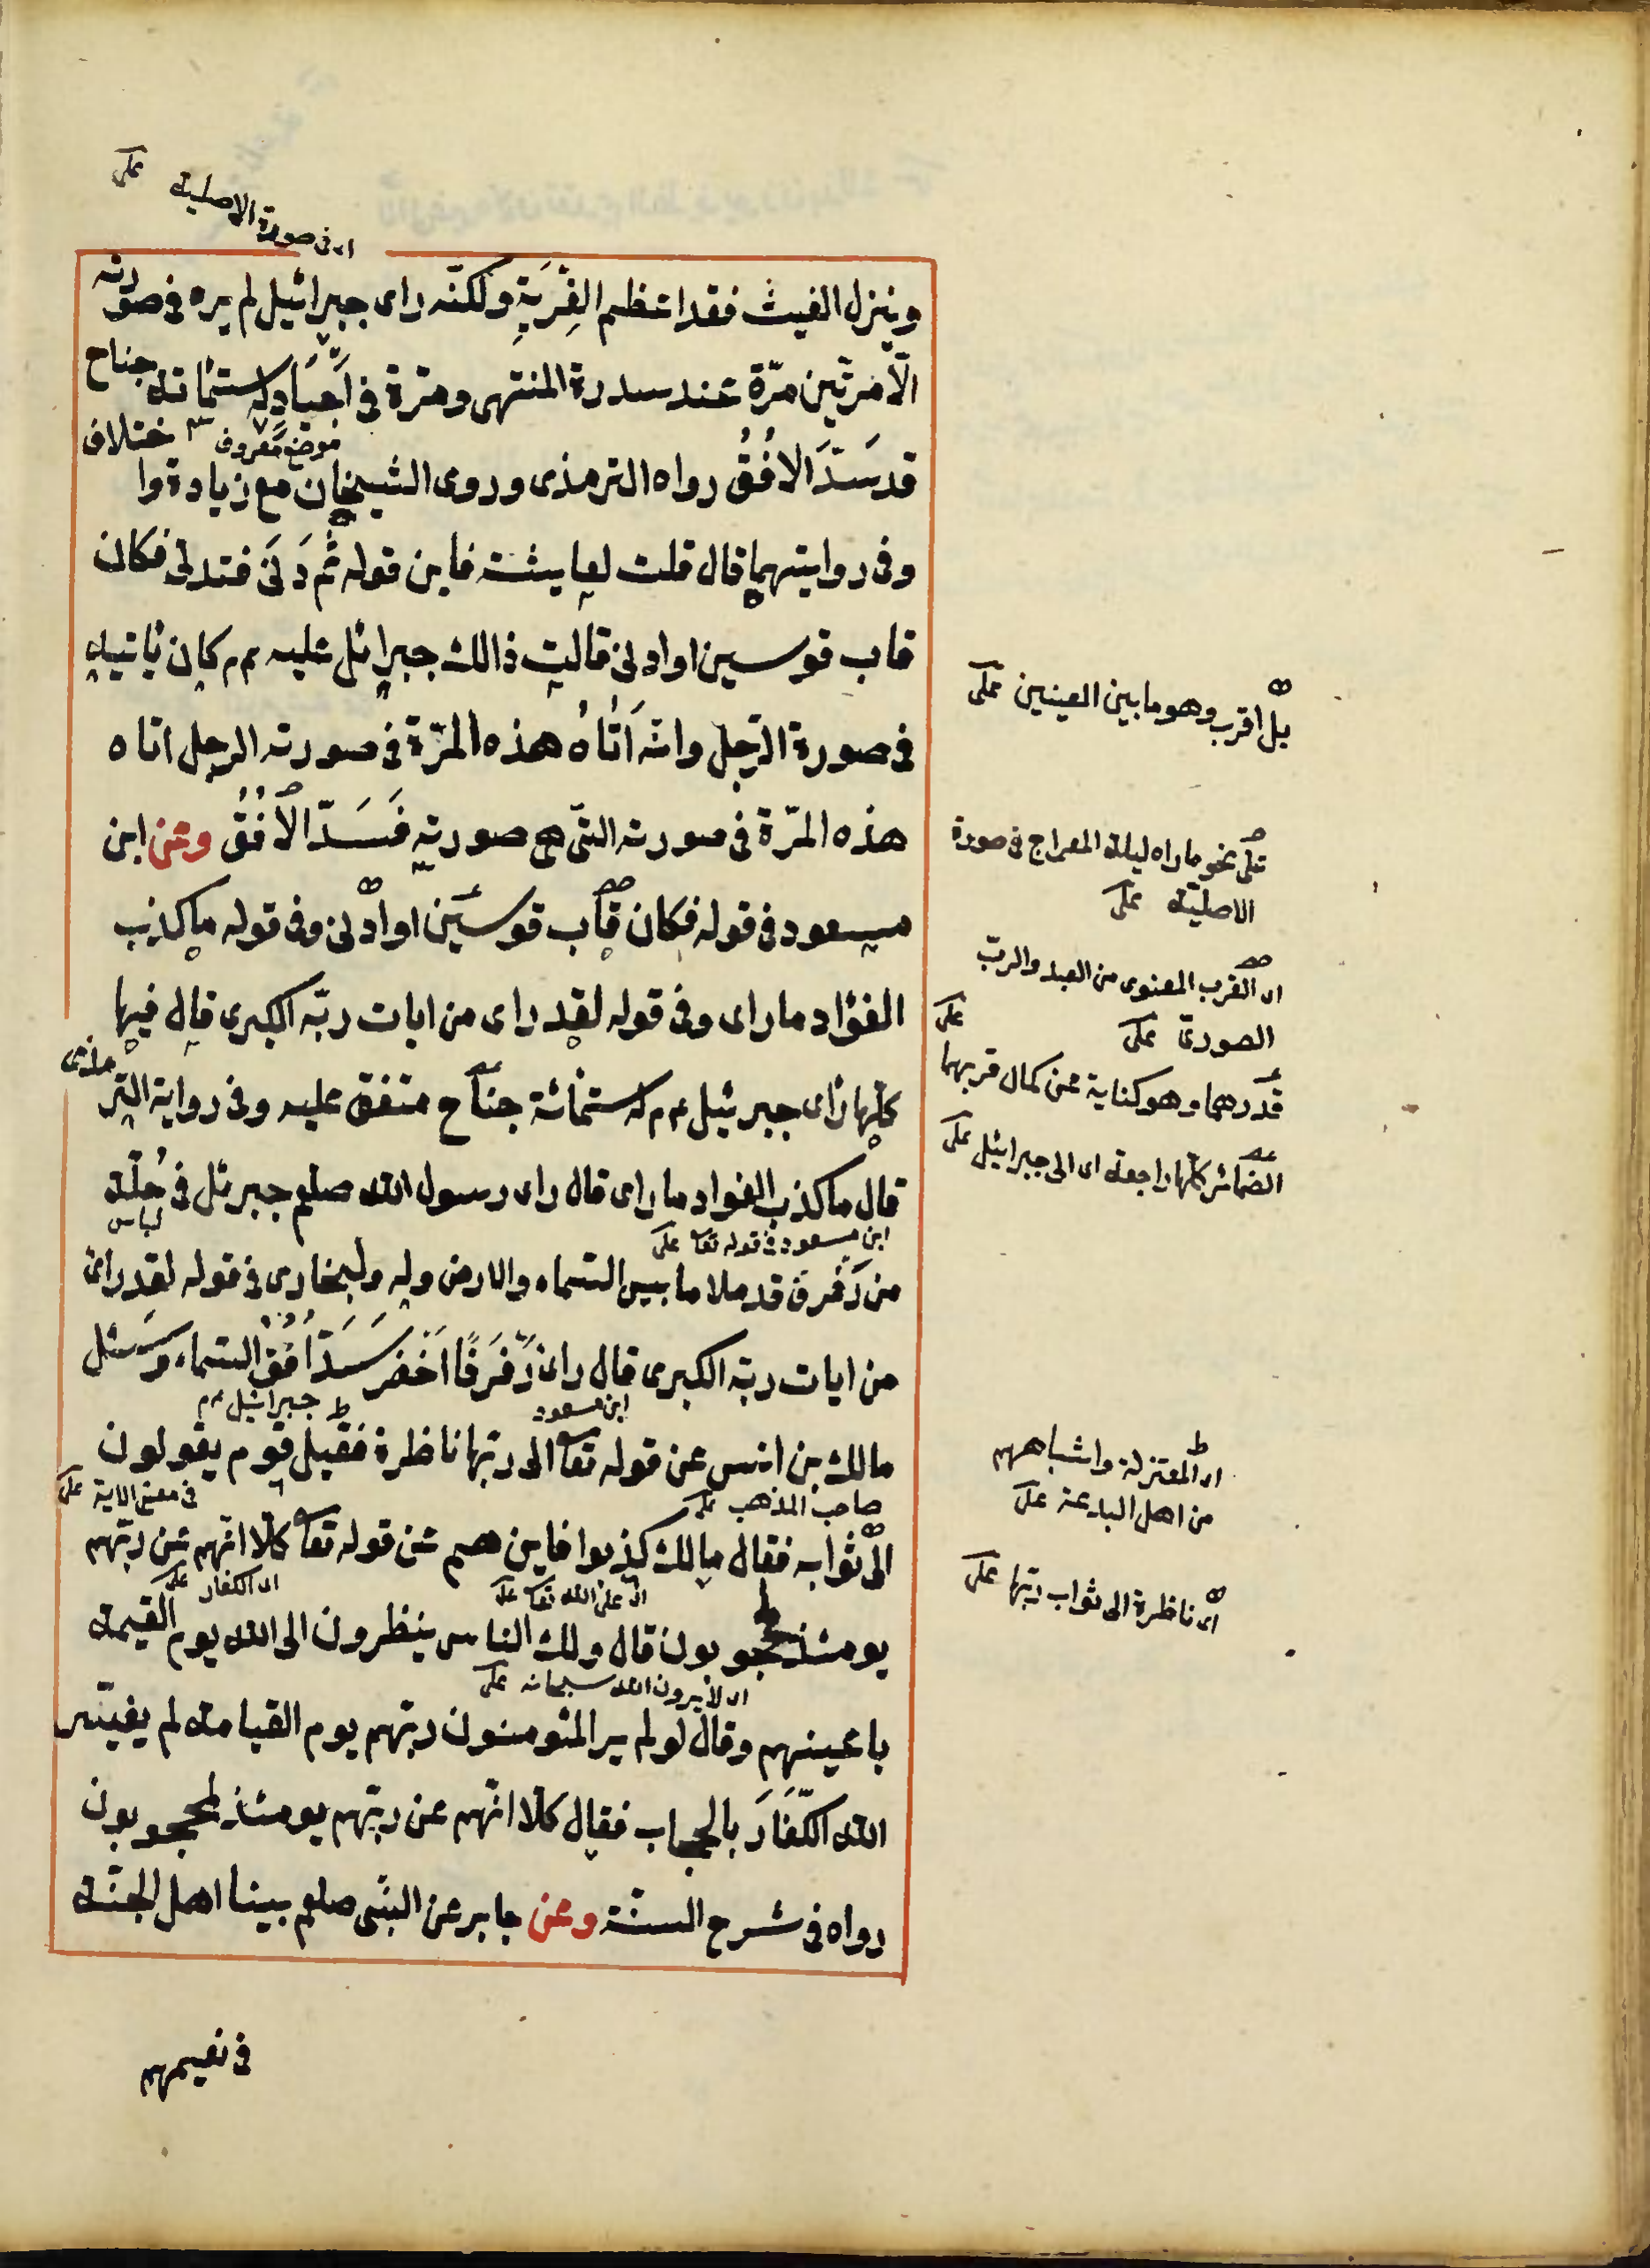 اى فى صورة الاصلية على
وينزل الغيث فقد اعظم الفِرْيَةِ ولكنّه راى جبرائيل لم يره فى صورته
الّا مرتين مرّة عند سدرة المنتهى ومرّة فى اَجْيَادٍ له ستمائة جناح
موضع معروف
قد سَدَّ الاُفُقُ رواه الترمذى وروى الشيخان مع زيادة واختلاف
وفى روايتهما قال قلت لعايشة فاين قوله ثُم دَنَى فتدلى فكان
قاب قوسين او ادنى قالت ذالك جبرائل عليه م م كان ياتيه
فى صورة الرّجل وانّه اَتَاهُ هذه المرّة فى صورته الرجل اتاه
هذه المرّة فى صورته التى هى صورته فَسَدّ الاُفُقُ وعن ابن
مسعود فى قوله فكان قاب قوسين او ادنى وفى قوله ما كذب
الفؤاد ما راى وفى قوله لقد راى من ايات ربّه الكبرى قال فيها
كلّها راى جبرئيل م م له ستمائة جناح متفق عليه وفى رواية الترمذى
قال ما كذب الفواد ما راى قال راى رسول الله صلعم جبرئل فى حُلّة
لباس
ابن مسعود فى قوله تعا على
من رَفرف قد ملا ما بين السّماء والارض وله ولبخارى فى قوله لقد راى
من ايات ربّه الكبرى قال راى رَفرَفًا اَخْضر سَدَّ اُفُقَ السّماء وسئل
ابن مسعود
جبرائيل م م
مالك بن انس عن قوله تعا الى ربّها ناظرة فقيل قوم يقولون
صاحب المذهب على
فى معنى الاية على
الى ثوابه فقال مالك كذبوا فاين هم عن قوله تعا كلّا انّهم عن ربّهم
اى عن الله تعا على
اى الكفار على
يومئذ لمحجوبون قال ولك الناس ينظرون الى الله يوم القيمة
اى لا يرون الله سبحانه على
باعينهم وقال لو لم ير المئومنون ربّهم يوم القيامة لم يعيّر
الله الكفّارَ بالحجاب فقال كلّا انّهم عن ربّهم يومئذ لمحجوبون
رواه فى شرح السنّة وعن جابر عن النبّى صلعم بينا اهل الجنّة
فى نعيمهم
بل اقرب وهو ما بين العينين على
على نحو ما راه ليلة المعراج فى صورة
الاصليّة على
اى القرب المعنوى من العبد والربّ
الصورىّ على
قدرهما وهو كناية عن كمال قربهما على
الضّمائر كلّها راجعة اى الى جبرائيل على
اى المعتزلة واشباههم
من اهل البدعة على
اى ناظرة الى ثواب ربّها على